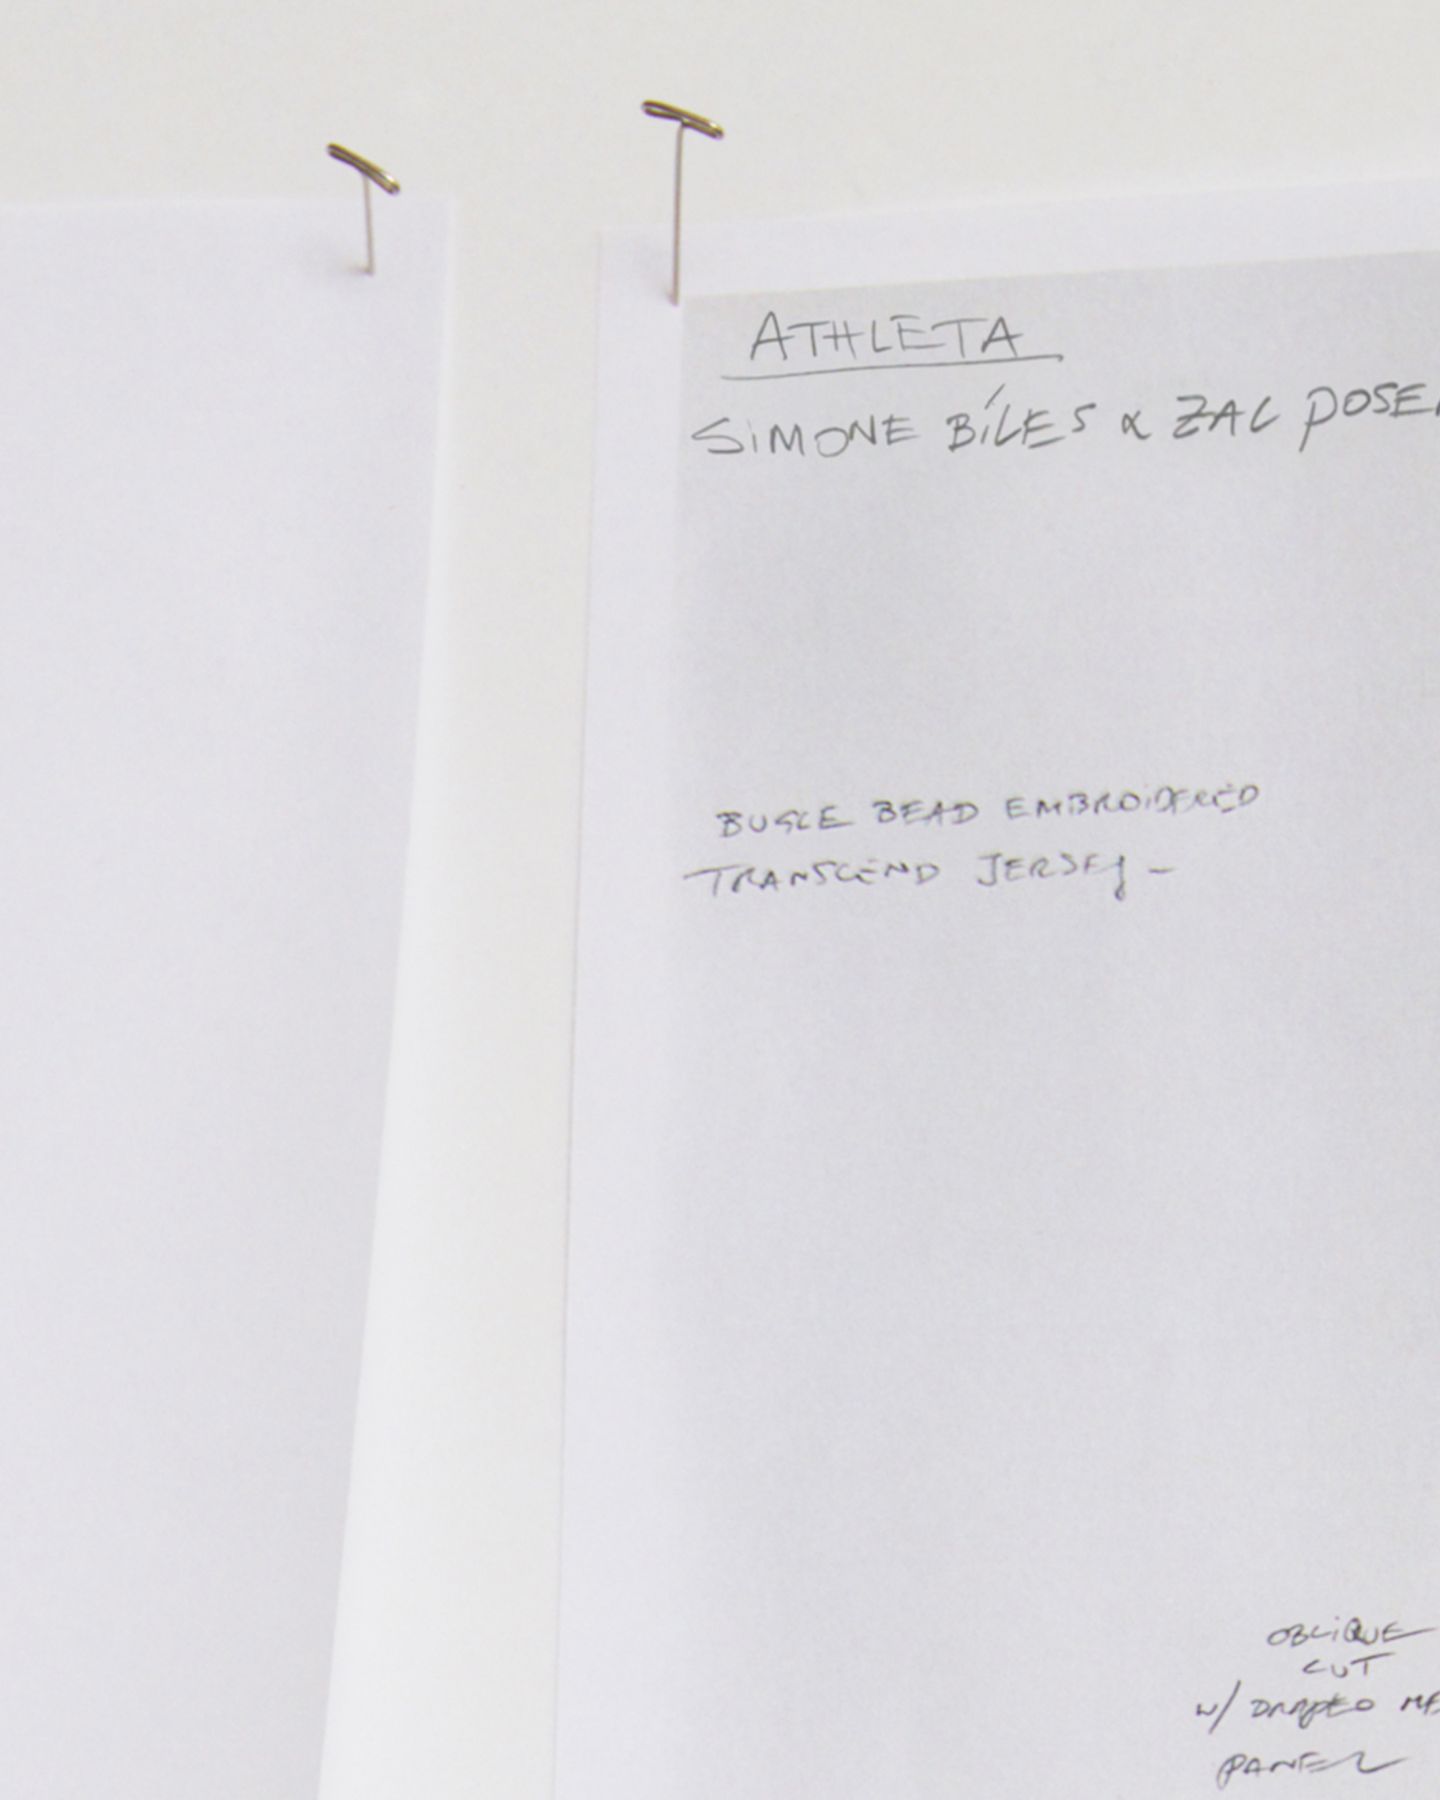 ATHLETA
SIMONE BILES & ZAC POSE
BUGLE BEAD EMBROIDERED
TRANSCEND JERSEY -
OBLIQUE
CUT
W/ DRAPED
PANEL